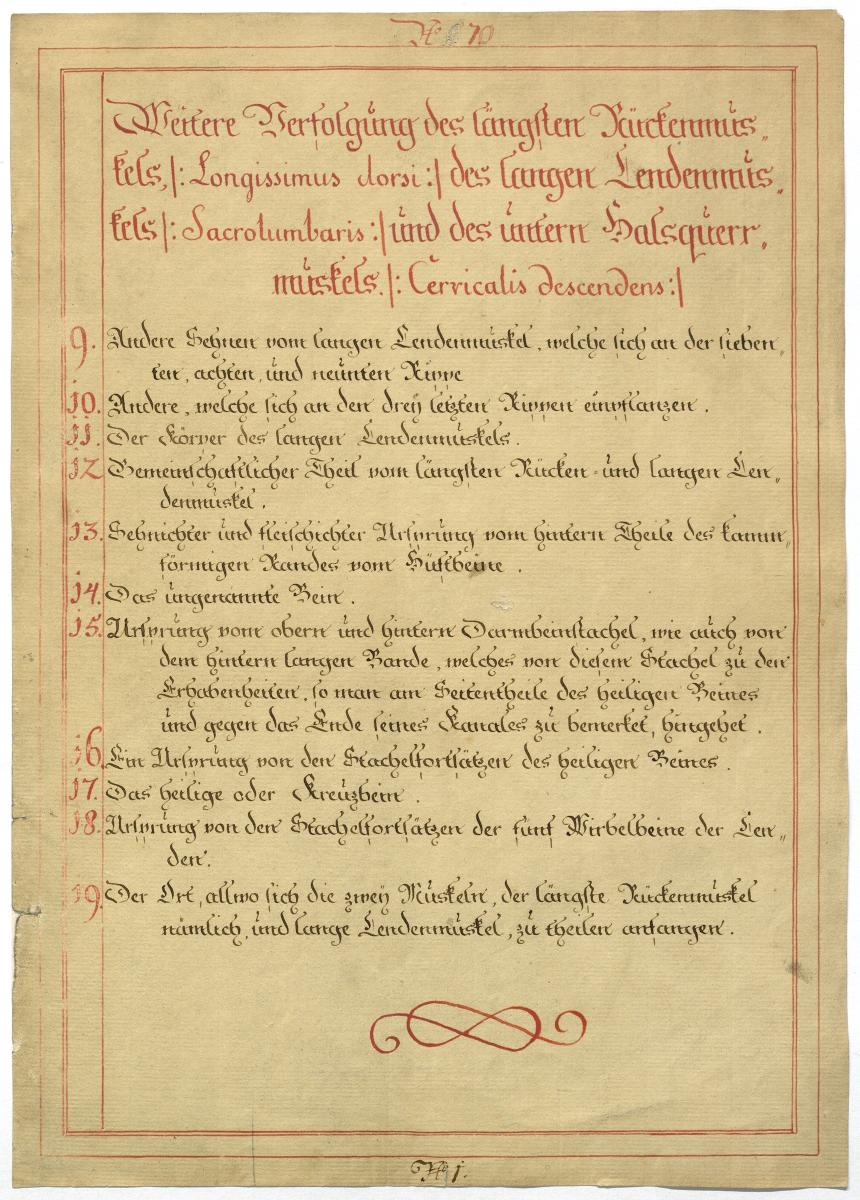 No 70
Weitere Verfolgung des längsten Rückenmus„
kels, /: Longissimus dorsi :/ des langen Lendenmus„
kels /: Sacrolumbaris :/ und des untern Halsquerr„
muskels. /: Cervicalis descendens :/
9. Andere Sehnen vom langen Lendenmuskel, welche sich an der sieben„
ten, achten, und neunten Rippe
10. Andere, welche sich an den drey letzten Rippen einpflanzen.
11. Der Körper des langen Lendenmuskels.
12 Gemeinschaftlicher Theil vom längsten Rücken- und langen Len„
denmuskel.
13. Sehnichter und fleischichter Ursprung vom hintern Theile des kamm„
förmigen Randes vom Hüftbeine.
14. Das ungenannte Bein.
15. Ursprung vom obern und hintern Darmbeinstachel, wie auch von
dem hintern langen Bande, welches von diesem Stachel zu den
Erhabenheiten, so man am Seitentheile des heiligen Beines
und gegen das Ende seines Kanales zu bemerket, hingehet.
16. Ein Ursprung von den Stachelfortsätzen des heiligen Beines.
17. Das heilige oder Kreuzbein.
18. Ursprung von den Stachelfortsätzen der fünf Wirbelbeine der Len„
den.
19. Der Ort, allwo sich die zwey Muskeln, der längste Rückenmuskel
nämlich, und lange Lendenmuskel, zu theilen anfangen.
No 1.